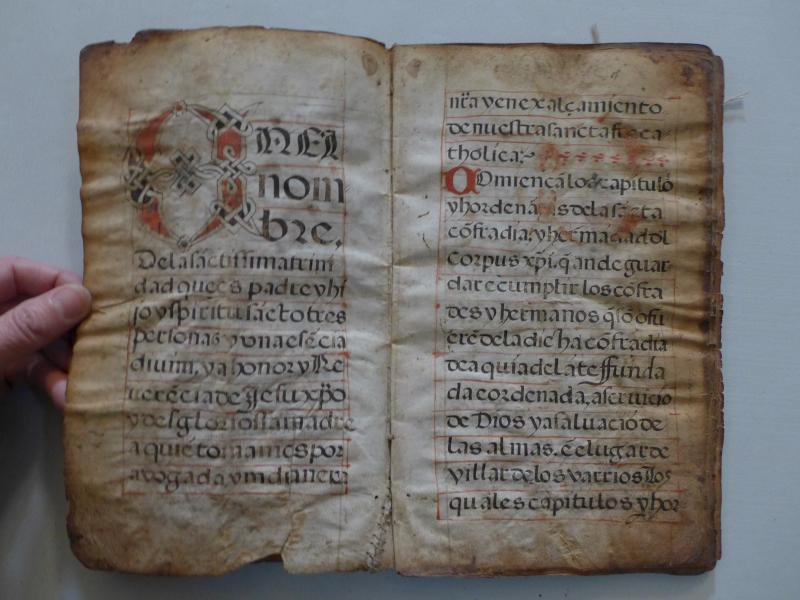 ENEL
nom-
bre,
Dela sāctissima trini
dad que es padre y hi
jo y spiritu sācto tres
personas y una esēcia
divina, y a honor y Re
uerēcia de Jesu xp̄o
y de s gloriossa madre
a quiē tomamos por
avogada y m̄dianera
nr̄a y en exalçamiento
de nuestra sancta fee ca
tholica;
Comiençā los capitulo
y hordenāças dela sācta
cōfradia, y hermādad dl
Corpus xp̄i, q̄ an de guar
dar e cumplir los cōfra
des y hermanos q̄ sō o fu
erē dela dicha cōfradia
de aqui adelāte ffunda
da e ordenada, a seruicio
de Dios y a saluaciō de
las almas, ē el lugar de
villar de los varrios los
quales capitulos y hor